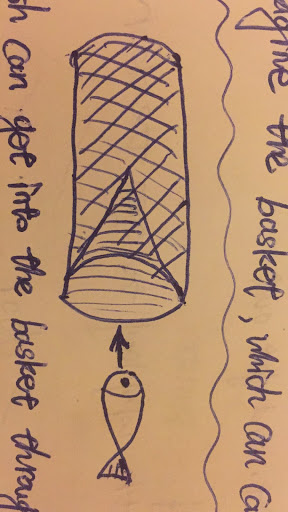 agine the basket, which can ca
sh can get into the basket throug